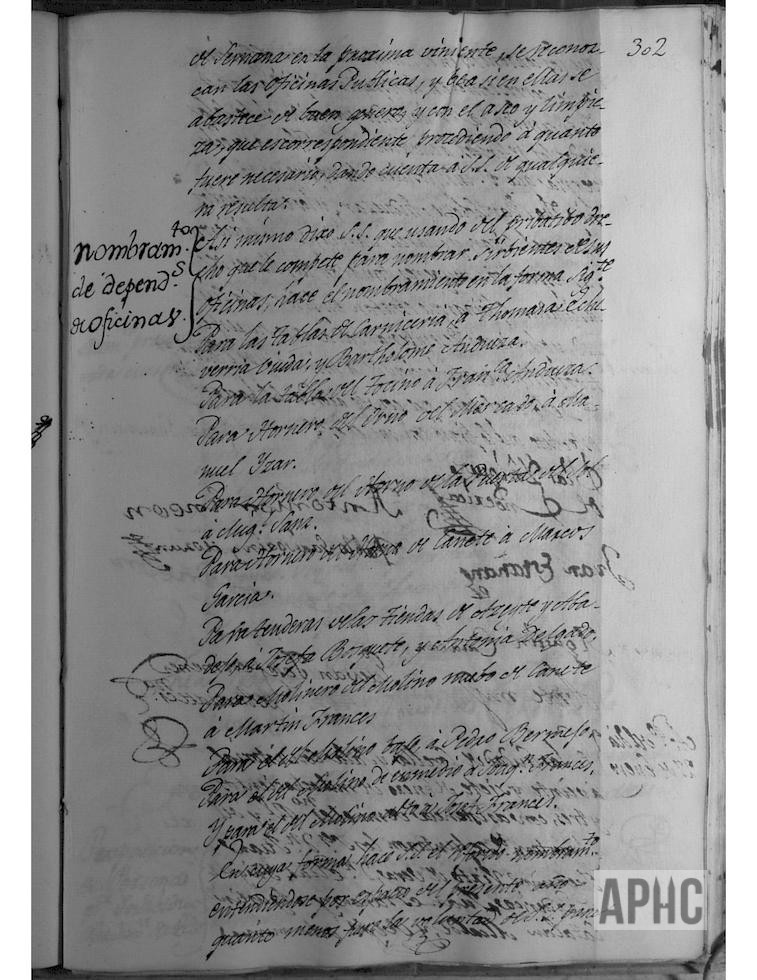 302
de semana en la proxima viniente, se reconoz-
can las oficinas Publicas, y vea si en ellas se
abastece de buen genero, y con el aseo y limpie-
za, que es correspondiente, procediendo à quanto
fuere necesario, dando cuenta à S.S. de qualquie-
ra resulta.
nombram.tos
de depend.s
de oficinas.
Asi mismo dixo S.S. que usando del pribatibo dre-
cho que le compete para nombrar sirbientes de sus
oficinas, hace el nombramiento en la forma sig.te
Para las tablas de Carniceria, à Thomasa Echi-
verria viuda, y Bartholome Andueza.
Para la tabla del tocino à Fran.ca Andueza.
Para Hornero del Orno del Mercado, à Ma-
nuel Yzar.
Para Hornero del Horno de la Puerta del Sol
à Mig.l Sanz.
Para Hornero del de Canete à Marcos
Garcia.
Para tenderas de las tiendas de Azeyte y Aba-
dejo, à Josefa Bosquete, y Antonia Delgado,
Para Molinero del Molino nuebo de Canete
à Martin Frances
Para el del Molino bajo, à Pedro Bermejo,
Para el del Molino de en medio à Joaq.n Frances,
Y para el del Molino alto à Josef Frances.
En cuya forma hace S.S. el referido nombram.to
entendiendose por espacio del presente año
quanto menos fuere la voluntad de S.S. para
APHC